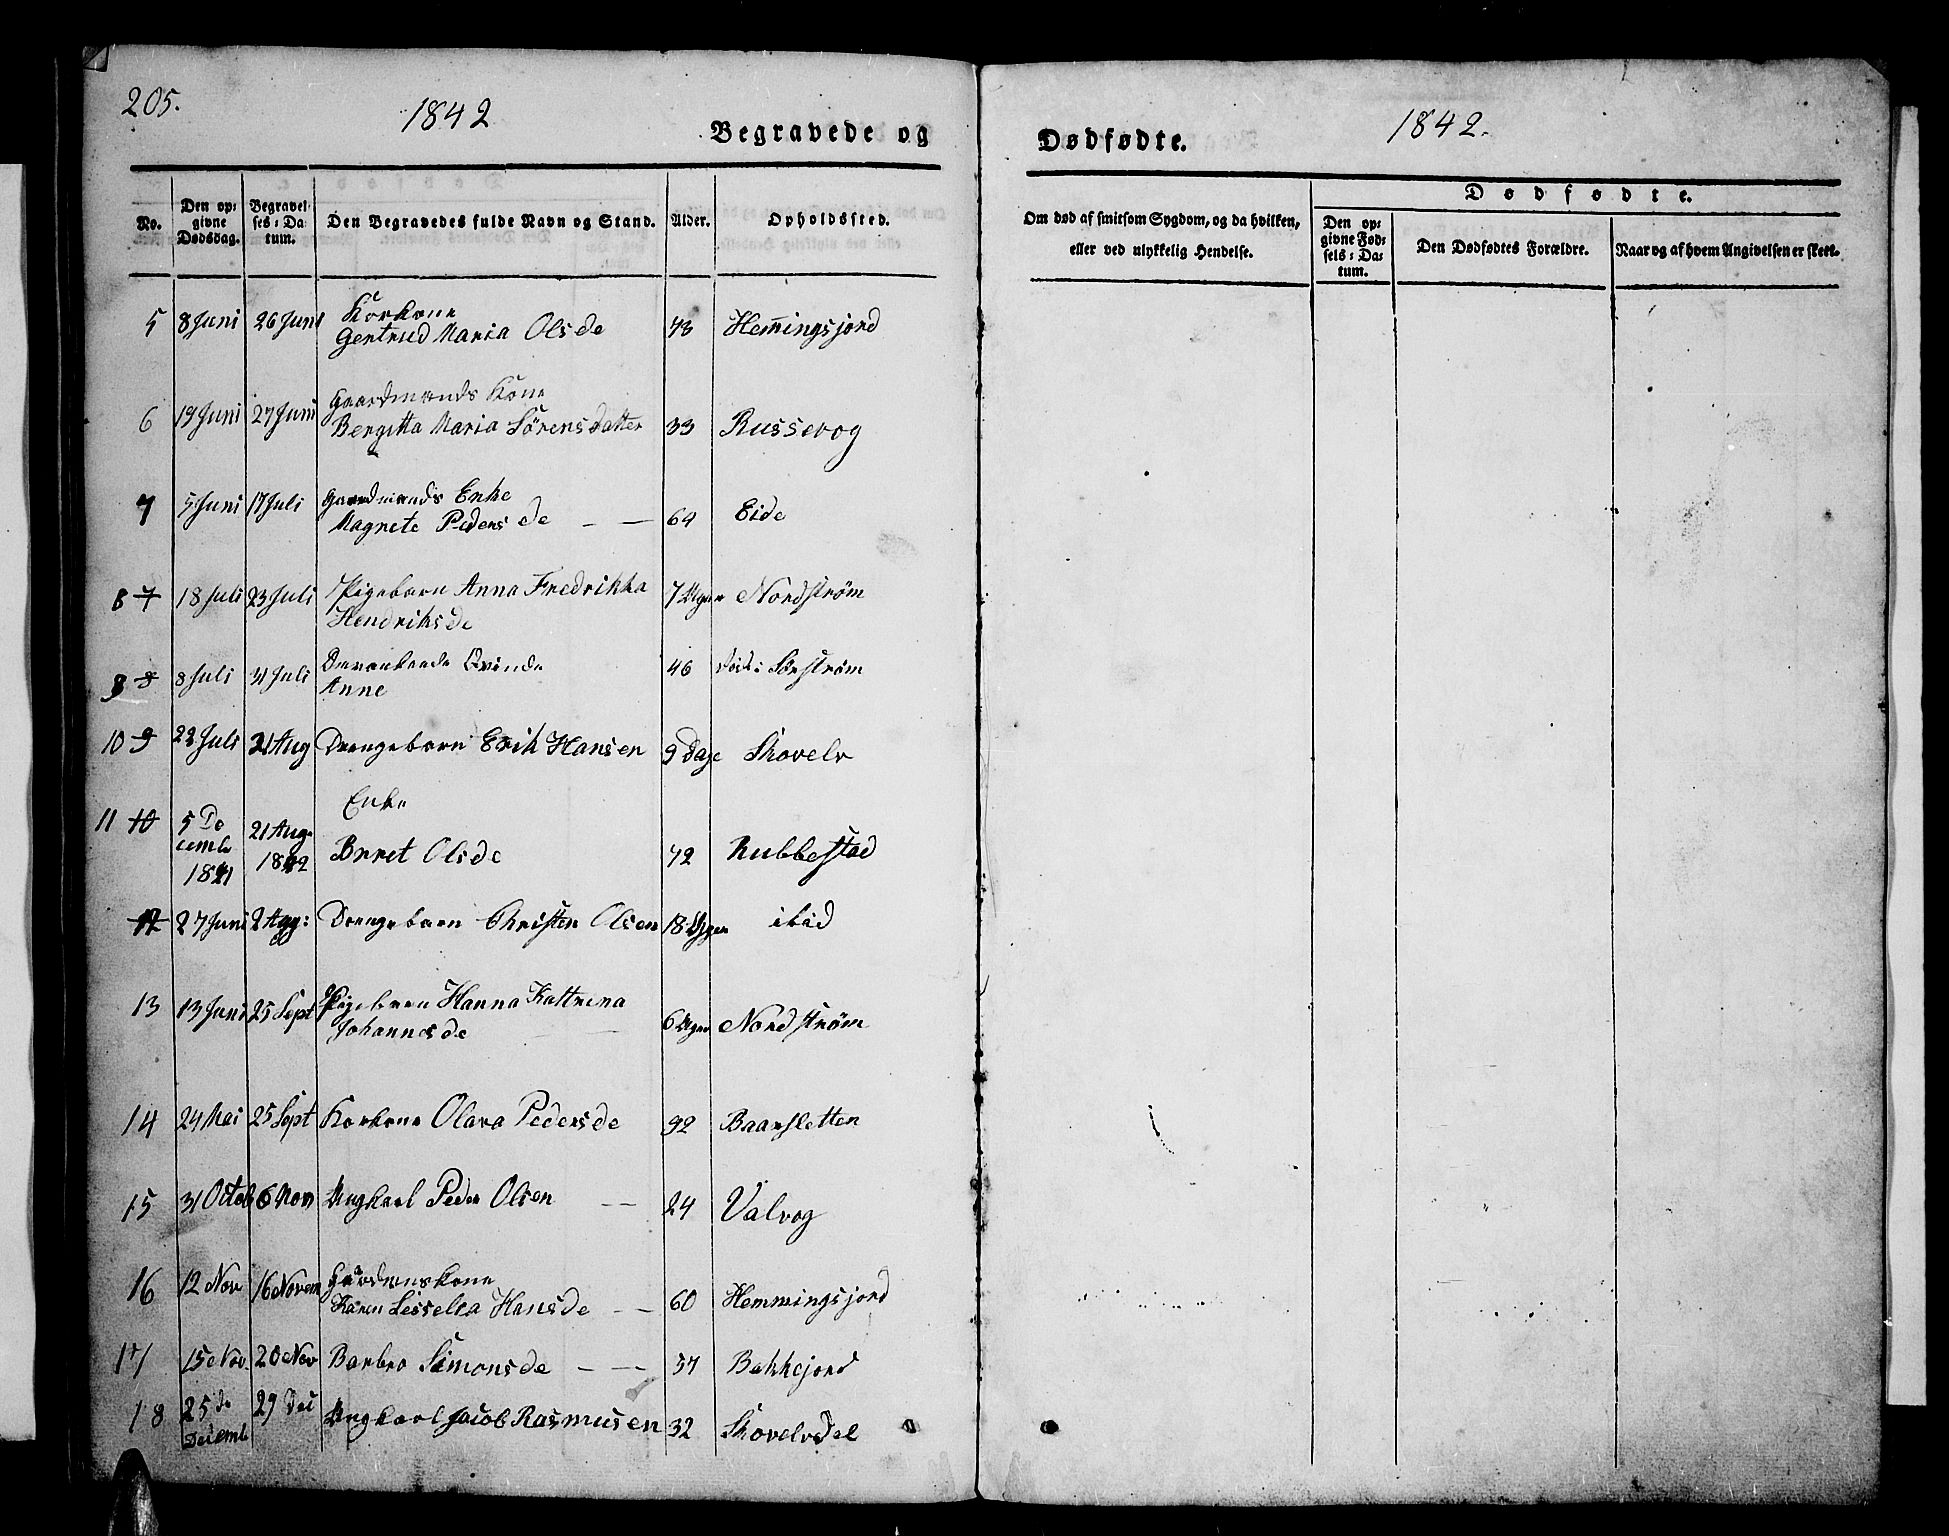 205.
1842
Begravede og
No.
Den op-
givne
Dødsdag.
Begravel-
ses-Da-
tum.
Den Begravedes fulde Navn og Stand.
Alder.
Opholdssted.
5 8 Juni 26 Juni Korkone
Gertrud Maria Olsde 73 Hemingsjord
6 19 Juni 27 Juni Gaardmands Kone
Bergitta Maria Sörensdatter 33 Russevog
7 5 Juni 17 Juli Gaardmands Enke
Magnete Pedersde 64 Eide
8 7 18 Juli 23 Juli Pigebarn Anna Fredrikka 7 Uger Nordström
Hendriksde
9 8 8 Juli 31 Juli Qvinde 46 Sörström
Anne
10 9 22 Juli 21 Aug Drengebarn Erik Hansen 9 Dage Skovelv
11 10 5 De
cemb
1841
21 Aug
1842
Enke
Beret Olsde 72 Rubbestad
12 27 Juni 2 Drengebarn Christen Olsen 18 Uger ibid
13 13 Juni 25 Sept Pigebarn Hanna Kattrina
Johannesde 6 Uger Nordström
14 24 Mai 25 Sept Korkone Olava Pedersde 92 Baarsletten
15 31 Octob 6 Nov Ungkarl Peder Olsen 24 Valvog
16 12 Nov 16 Novem Gaardmanskone
Karen Lisselea Hansde 60 Hemmingsjord
17 15 Nov. 20 Nov Barbro Simonsde 37 Bakkejord
18 25de
Decemb
29 Dec Ungkarl Jacob Rasmusen 32 Skovelvdal
Dødfødte.
1842.
Om død af smitsom Sygdom, og da hvilken,
eller ved ulykkelig Hendelse.
Dødfødte.
Den op-
givne Fød-
sels-Da-
tum.
Den Dødfødtes Forældre.
Naar og af hvem Angivelsen er skeet.